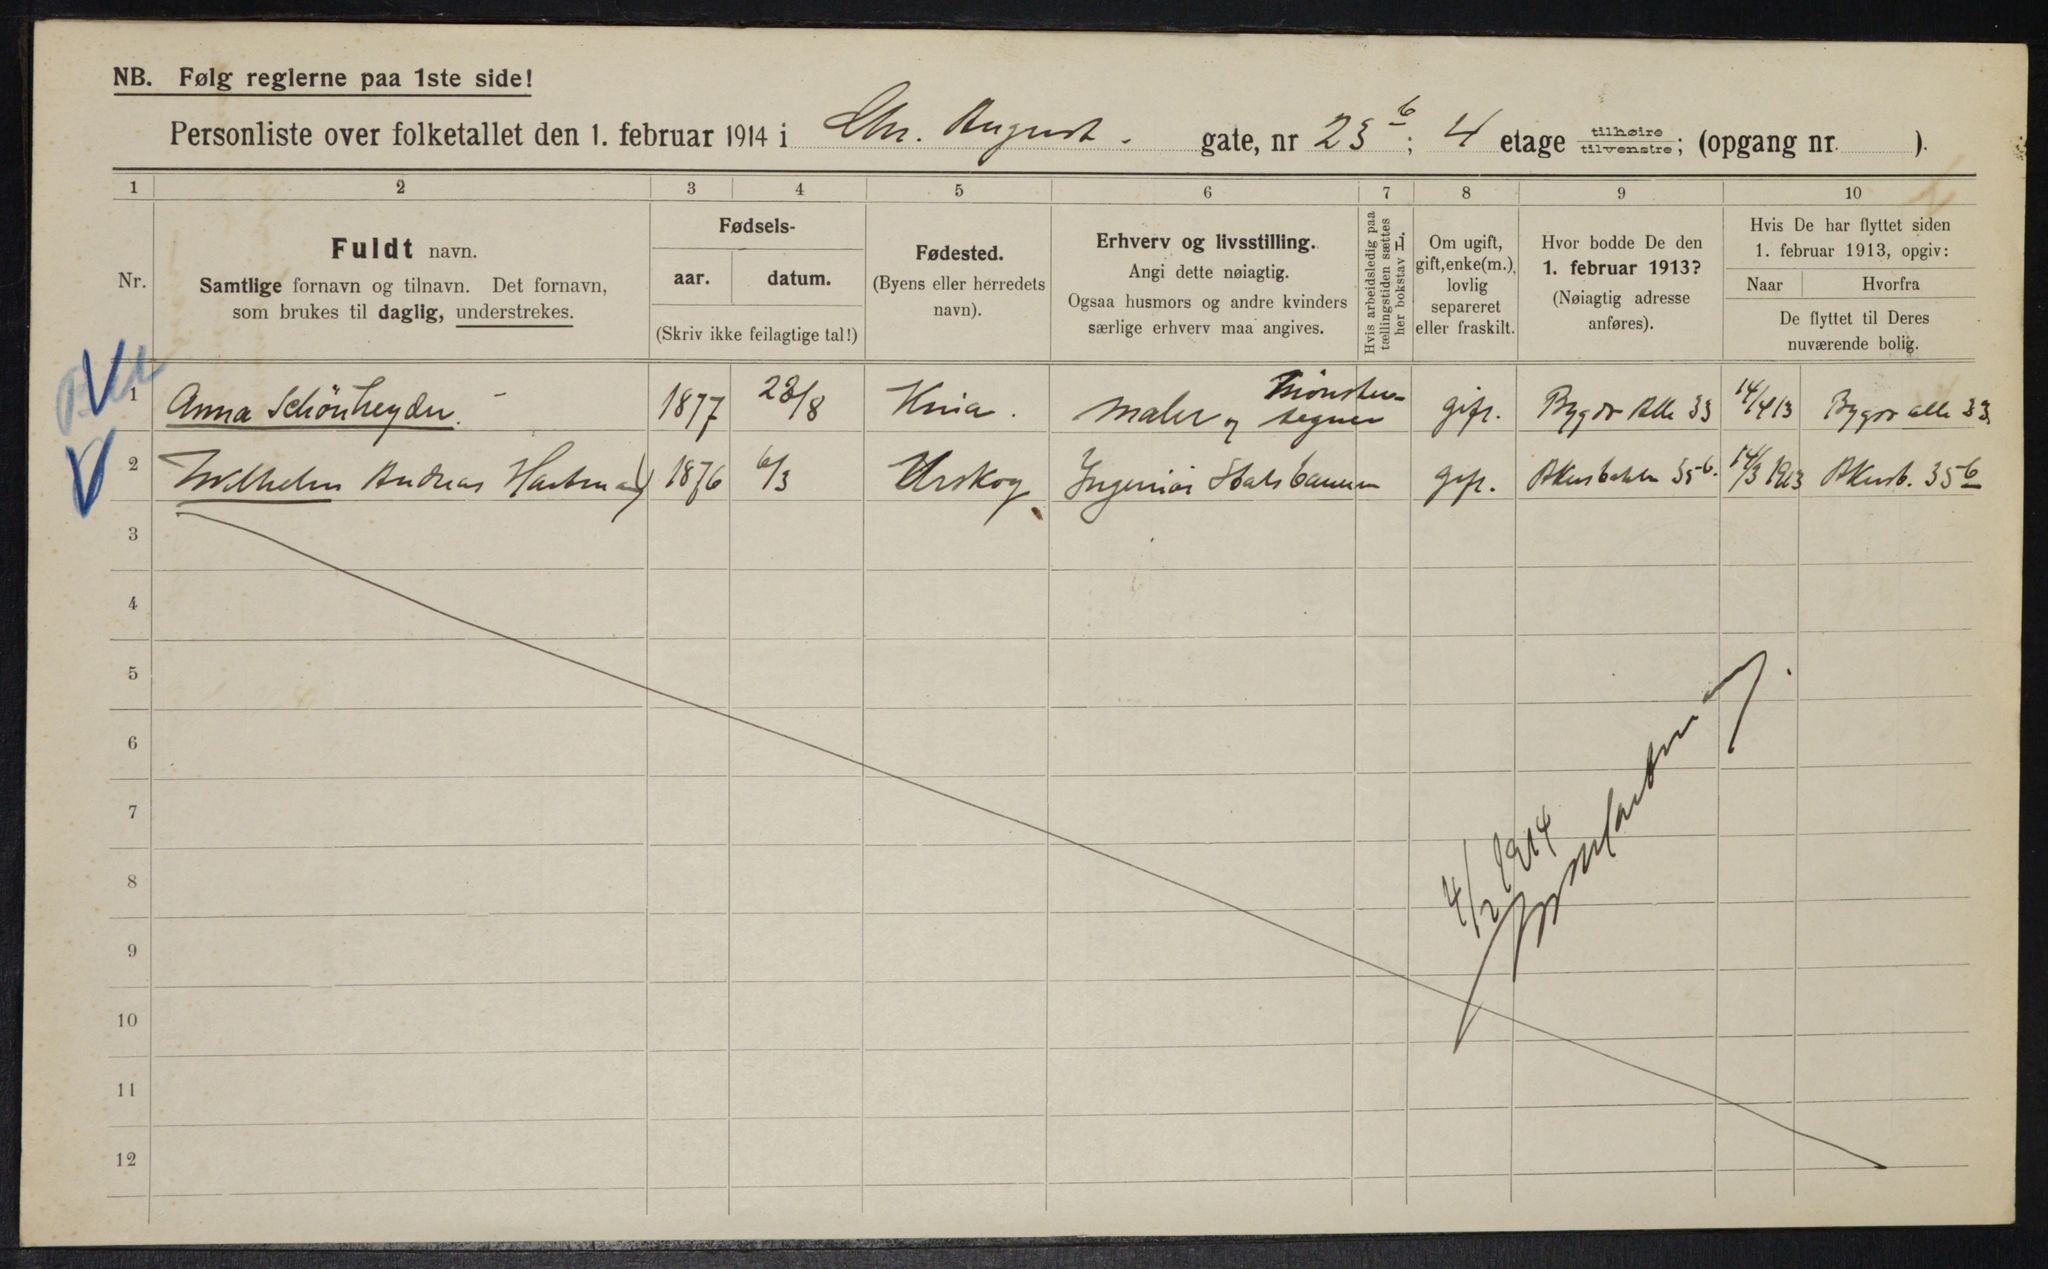 NB. Følg reglerne paa 1ste side!
Personliste over folketallet den 1. februar 1914 i Chr. August. gate, nr 23 b; 4 etage tilhøire tilvenstre; (opgang nr. ).
1 2 3 4 5 6 7 8 9 10
Nr.
Fuldt navn.
Samtlige fornavn og tilnavn. Det fornavn,
som brukes til daglig, understrekes.
Fødsels-
aar. datum.
(Skriv ikke feilagtige tal!)
Fødested.
(Byens eller herredets
navn).
Erhverv og livsstilling.
Angi dette nøiagtig.
Ogsaa husmors og andre kvinders
særlige erhverv maa angives.
Hvis arbeidsledig paa
tællingstiden sættes
her bokstav L.
Om ugift,
gift, enke(m.),
lovlig
separeret
eller fraskilt.
Hvor bodde De den
1. februar 1913?
(Nøiagtig adresse
anføres).
Hvis De har flyttet siden
1. februar 1913, opgiv:
Naar Hvorfra
De flyttet til Deres
nuværende bolig.
1 Anna Schönheyder. 1877 23/8 Kina. Maler og Mønster- tegner gift. Bygdø Alle 33 14/4 13 Bygdø alle 33
2 Wilhelm Andreas Hartman 1876 6/3 Urskog Ingeniør Statsbanen gift. Akersbakken 35 b. 14/3 1913 Akersb. 35 b
3
4
5
6
7
8
9
10
11
12
4/2 1914
Hartman